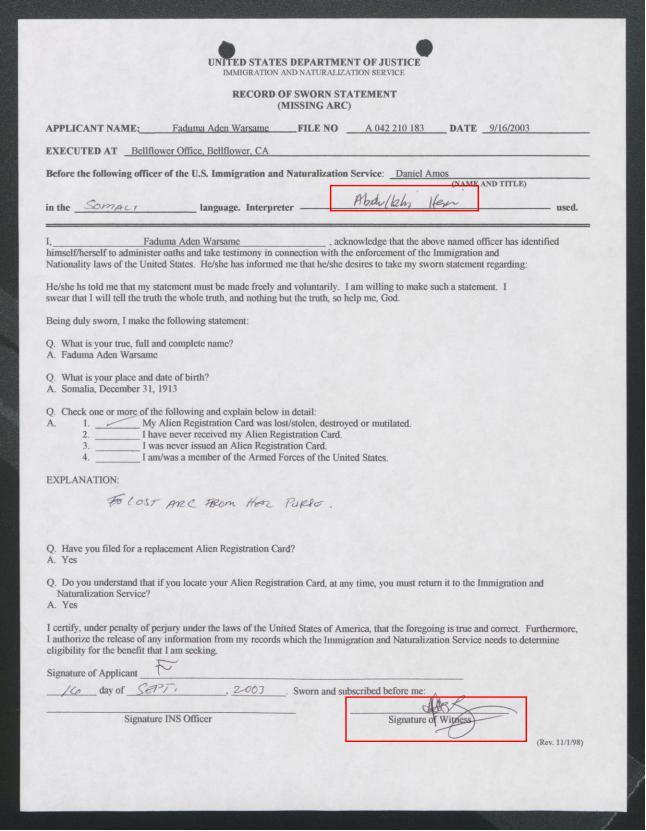 UNITED STATES DEPARTMENT OF JUSTICE
IMMIGRATION AND NATURALIZATION SERVICE
RECORD OF SWORN STATEMENT
(MISSING ARC)
APPLICANT NAME: Faduma Aden Warsame FILE NO A 042 210 183 DATE 9/16/2003
EXECUTED AT Bellflower Office, Bellflower, CA
Before the following officer of the U.S. Immigration and Naturalization Service: Daniel Amos
(NAME AND TITLE)
in the SOMALI language. Interpreter used.
I, Faduma Aden Warsame , acknowledge that the above named officer has identified
himself/herself to administer oaths and take testimony in connection with the enforcement of the Immigration and
Nationality laws of the United States. He/she has informed me that he/she desires to take my sworn statement regarding:
He/she hs told me that my statement must be made freely and voluntarily. I am willing to make such a statement. I
swear that I will tell the truth the whole truth, and nothing but the truth, so help me, God.
Being duly sworn, I make the following statement:
Q. What is your true, full and complete name?
A. Faduma Aden Warsame
Q. What is your place and date of birth?
A. Somalia, December 31, 1913
Q. Check one or more of the following and explain below in detail:
A. 1. My Alien Registration Card was lost/stolen, destroyed or mutilated.
2. I have never received my Alien Registration Card.
3. I was never issued an Alien Registration Card.
4. I am/was a member of the Armed Forces of the United States.
EXPLANATION:
LOST ARC FROM HER PURSE.
Q. Have you filed for a replacement Alien Registration Card?
A. Yes
Q. Do you understand that if you locate your Alien Registration Card, at any time, you must return it to the Immigration and
Naturalization Service?
A. Yes
I certify, under penalty of perjury under the laws of the United States of America, that the foregoing is true and correct. Furthermore,
I authorize the release of any information from my records which the Immigration and Naturalization Service needs to determine
eligibility for the benefit that I am seeking.
Signature of Applicant
16 day of SEPT. , 2003 . Sworn and subscribed before me:
Signature INS Officer Signature of Witness
(Rev. 11/1/98)